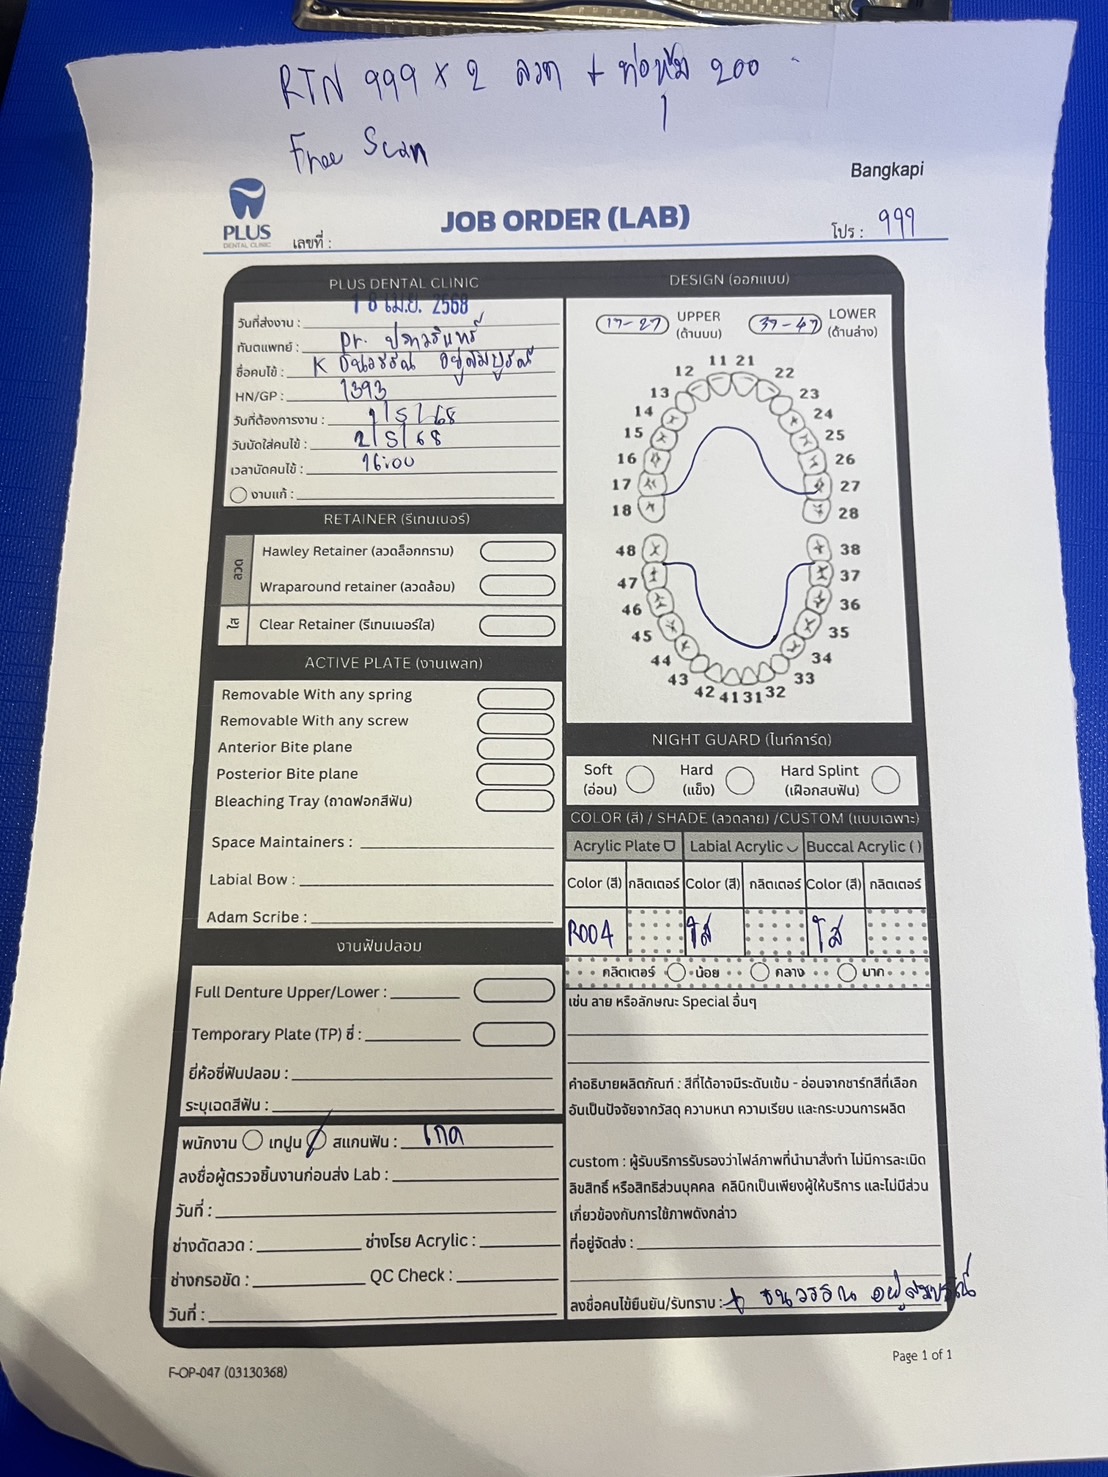 RTN 999 x 2 ลวด + ท่อหุ้ม 200
Free Scan
Bangkapi
PLUS
DENTAL CLINIC
เลขที่ :
JOB ORDER (LAB)
โปร : 999
PLUS DENTAL CLINIC
วันที่ส่งงาน : 18 เม.ย. 2568
ทันตแพทย์ : Dr.
ชื่อคนไข้ : K
HN/GP : 1393
วันที่ต้องการงาน : 1/5/68
วันนัดใส่คนไข้ : 2/5/68
เวลานัดคนไข้ : 16:00
งานแก้ :
RETAINER (รีเทนเนอร์)
ลวด
Hawley Retainer (ลวดล็อกกราม)
Wraparound retainer (ลวดล้อม)
ใส
Clear Retainer (รีเทนเนอร์ใส)
ACTIVE PLATE (งานเพลท)
Removable With any spring
Removable With any screw
Anterior Bite plane
Posterior Bite plane
Bleaching Tray (ถาดฟอกสีฟัน)
Space Maintainers :
Labial Bow :
Adam Scribe :
งานฟันปลอม
Full Denture Upper/Lower :
Temporary Plate (TP) ซี่ :
ยี่ห้อซี่ฟันปลอม :
ระบุเฉดสีฟัน :
พนักงาน เทปูน สแกนฟัน : เกด
ลงชื่อผู้ตรวจชิ้นงานก่อนส่ง Lab :
วันที่ :
ช่างดัดลวด : ช่างโรย Acrylic :
ช่างกรอขัด : QC Check :
วันที่ :
DESIGN (ออกแบบ)
17-27 UPPER (ด้านบน) 37-47 LOWER (ด้านล่าง)
11 21
12 22
13 23
14 24
15 25
16 26
17 27
18 28
48 38
47 37
46 36
45 35
44 34
43 33
42 41 31 32
NIGHT GUARD (ไนท์การ์ด)
Soft (อ่อน) Hard (แข็ง) Hard Splint (เฝือกสบฟัน)
COLOR (สี) / SHADE (ลวดลาย) /CUSTOM (แบบเฉพาะ)
Acrylic Plate Labial Acrylic Buccal Acrylic ()
Color (สี) กลิตเตอร์ Color (สี) กลิตเตอร์ Color (สี) กลิตเตอร์
R004 ใส ใส
กลิตเตอร์ น้อย กลาง มาก
เช่น ลาย หรือลักษณะ Special อื่นๆ
คำอธิบายผลิตภัณฑ์ : สีที่ได้อาจมีระดับเข้ม - อ่อนจากชาร์ทสีที่เลือก
อันเป็นปัจจัยจากวัสดุ ความหนา ความเรียบ และกระบวนการผลิต
custom : ผู้รับบริการรับรองว่าไฟล์ภาพที่นำมาสั่งทำ ไม่มีการละเมิด
ลิขสิทธิ์ หรือสิทธิส่วนบุคคล คลินิกเป็นเพียงผู้ให้บริการ และไม่มีส่วน
เกี่ยวข้องกับการใช้ภาพดังกล่าว
ที่อยู่จัดส่ง :
ลงชื่อคนไข้ยืนยัน/รับทราบ :
F-OP-047 (03130368)
Page 1 of 1